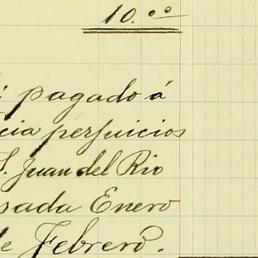 10.00
pagado á
cia perjuicios
S. Juan del Rio
sada Enero
de Febrero.